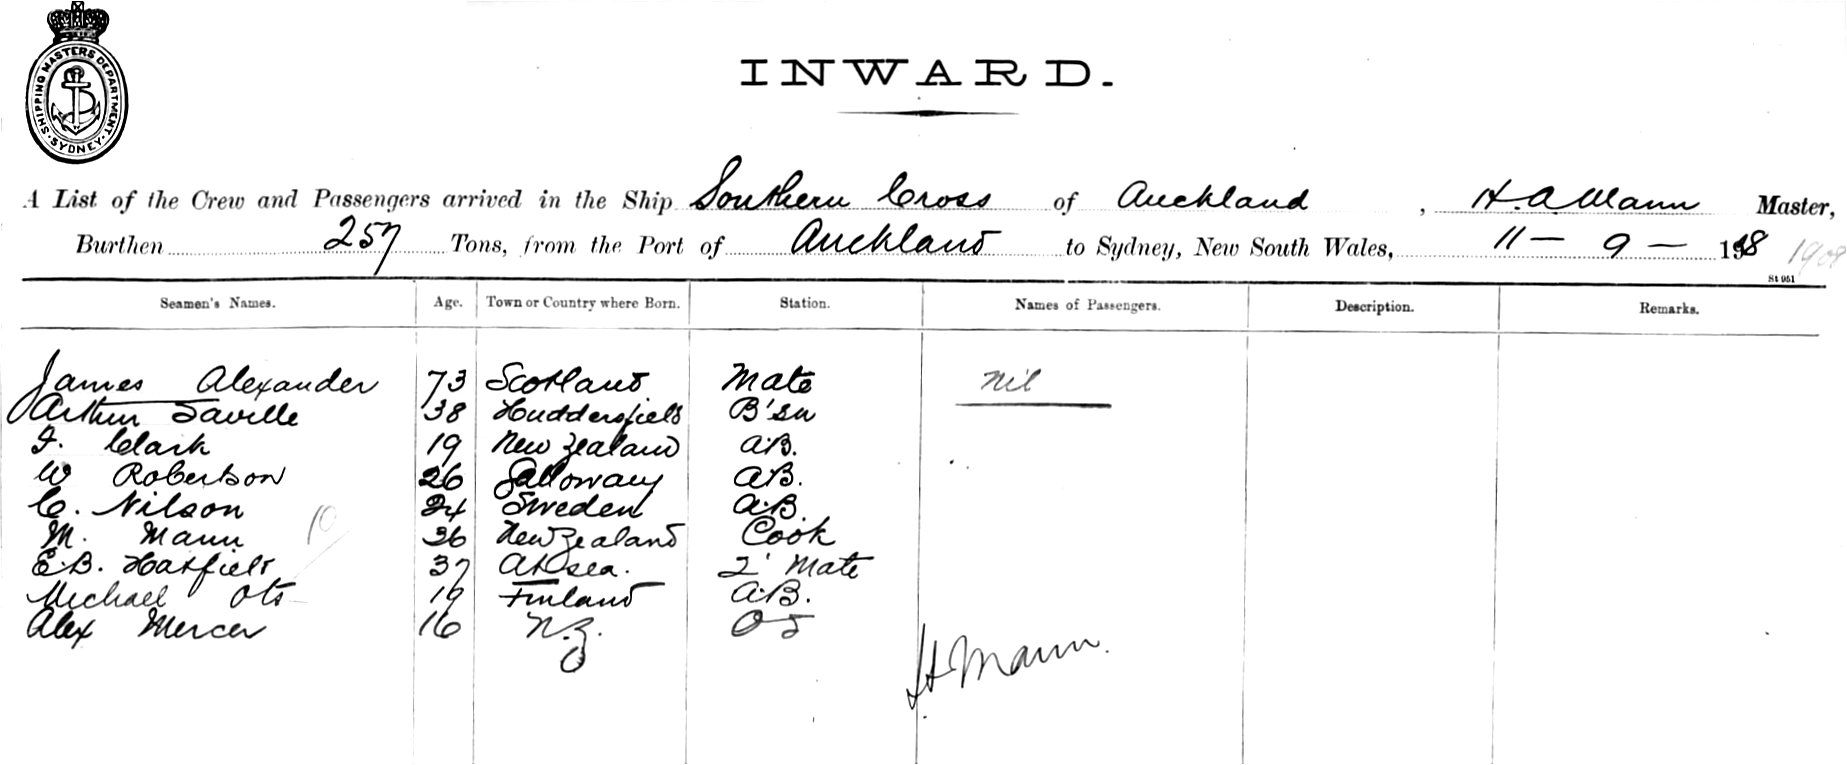 SHIPPING MASTERS DEPARTMENT · SYDNEY ·
INWARD.
A List of the Crew and Passengers arrived in the Ship Southern Cross of Auckland, H. A. Mann Master,
Burthen 257 Tons, from the Port of Auckland to Sydney, New South Wales, 11 - 9 - 1908
St 951
Seamen's Names. Age. Town or Country where Born. Station. Names of Passengers. Description. Remarks.
James Alexander 73 Scotland Mate Nil
Arthur Saville 38 Huddersfield B'sn
F. Clark 19 New Zealand A.B.
W Robertson 26 Galloway A.B.
C. Nilson 24 Sweden A.B
10
M. Mann 36 New Zealand Cook
E.B. Hatfield 37 At sea. 2' Mate
Michael Ots 19 Finland A.B.
Alex Mercer 16 N.Z. OS
H Mann.